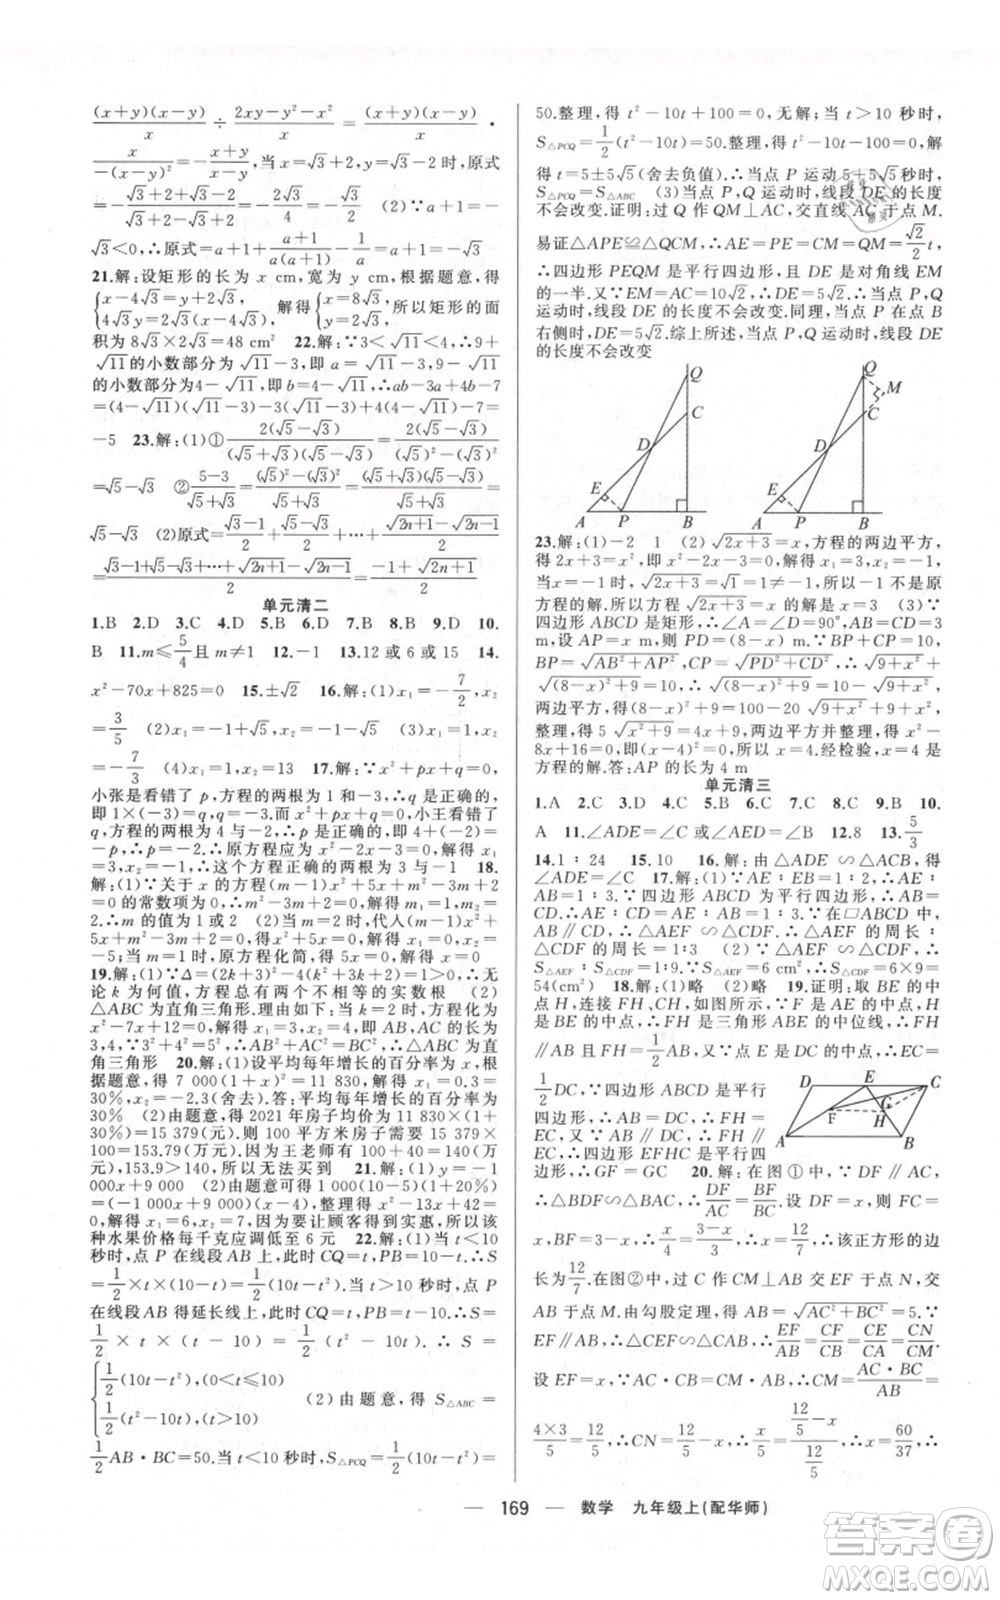 (x+y)(x-y)/x ÷ (2xy-y²-x²)/x = (x+y)(x-y)/x ·
x/(-(x-y)²) = -(x+y)/(x-y), 当 x=√3+2, y=√3-2 时, 原式
= -(√3+2+√3-2)/(√3+2-√3+2) = -2√3/4 = -√3/2 (2)∵a+1=-
√3<0,∴原式=a+1+(a+1)/(a(a+1))=a+1-1/a=a+1=-√3
21.解:设矩形的长为 x cm,宽为 y cm,根据题意,得
{x-4√3=y-2√3, 4√3y=2√3x, 解得{x=8√3, y=4√3, 所以矩形的面
积为 8√3×2√3=48 cm² 22.解:∵3<√11<4,∴9+
√11的小数部分为√11-3,即 a=√11-3,9-√11
的小数部分为4-√11,即 b=4-√11,∴ab-4a+3b-7
=(4-√11)(√11-3)-4(√11-3)+3(4-√11)-7=
-5 23.解:(1)① 2(√5-√3)/((√5+√3)(√5-√3)) = 2(√5-√3)/((√5)²-(√3)²)
=√5-√3 ②(5-3)/(√5+√3)=((√5)²-(√3)²)/(√5+√3)=(√5+√3)(√5-√3)/(√5+√3)=
√5-√3 (2)原式=(√3-1)/2+(√5-√3)/2+…+(√2n+1-√2n-1)/2=
(√3-1+√5-√3+…+√2n+1-√2n-1)/2=(-1+√2n+1)/2
单元清二
1.B 2.D 3.C 4.D 5.B 6.B 7.B 8.B 9.D 10.
B 11.m≤5/4且 m≠1 12.-1 13.12 或 6 或 15 14.
x²-70x+825=0 15.±√2 16.解:(1)x₁=-7/2,x₂
=3/5 (2)x₁=-1+√5,x₂=-1-√5 (3)x₁=-1,x₂
=-7/3 (4)x₁=1,x₂=13 17.解:∵x²+px+q=0,
小张看错了 p,方程的两根为 1 和-3,∴
1×(-3)=q,q=-3,小王看错了
q,方程的两根为 4 与-2,∴4+(-2)=-p,
p=-2,∴原来的方程为 x²-2x-3=0,(x-3)(x+1)
=0,∴这个方程正确的两根为 3 与-1 18.
解:(1)∵关于 x 的方程(m-1)x²+5x+m²-3m+2=0
的常数项为 0,∴m²-3m+2=0,解得 m₁=1,m₂
=2,∴m 的值为 1 或 2 (2)当 m=2 时,代入(m-1)x²+5x
+m²-3m+2=0,得 x²+5x=0,x(x+5)=0,解得 x₁=0,x₂
=-5;当 m=1 时,原方程化简,得 5x=0,解得 x=0
19.解:(1)∵Δ=(2k+3)²-4(k²+3k+2)=1>0,∴无
论 k 为何值,方程总有两个不相等的实数根 (2)
△ABC 为直角三角形.理由如下:当 k=2 时,方程化为
x²-7x+12=0,解得 x₁=3,x₂=4,即 AB,AC 的长为
3,4,∵3²+4²=5²,∴AB²+AC²=BC²,∴△ABC 为直
角三角形 20.解:(1)设平均每年增长的百分率为 x,根
据题意,得 7 000(1+x)²=11 830,解得 x₁=0.3=
30%,x₂=-2.3(舍去).答:平均每年增长的百分率为
30% (2)由题意,得 2021 年房子均价为 11 830×(1+
30%)=15 379(元),则 100 平方米房子需要 15 379×
100=153.79(万元),因为王老师有
153.9>153.79,所以王老师能买到 21.解:(1)y=-1
000x+11 000 (2)由题意可得(-1 000x+11 000)(x-4)
=(-1 000x+11 000)(x-4),整理得 x²-13x+42=0,
解得 x₁=6,x₂=7.为了让顾客得到实惠,所以该
种水果价格每千克应调低至 6 元 22.解:(1)当 t<10
秒时,点 P 在线段 AB 上,此时 CQ=t,PB=10-t.∴S
=1/2×t×(10-t)=1/2(10t-t²);当 t>10 秒时,点 P
在线段 AB 得延长线上,此时 CQ=t,PB=t-10.∴S=
1/2×t×(t-10)=1/2(t²-10t).∴S=
{1/2(10t-t²),(0<t≤10) 1/2(t²-10t),(t>10) (2)由题意,得 S△ABC=
1/2AB·BC=50.当 t<10 秒时,S△PCQ=1/2(10t-t²)=
50.整理,得 t²-10t+100=0,无解;当 t>10 秒时,
S△PCQ=1/2(t²-10t)=50.整理,得 t²-10t-100=0,解
得 t=5±5√5(舍去负值).∴当点 P 运动 5+5√5 秒时,
S△PCQ=S△ABC (3)当点 P,Q 运动时,线段 DE 的长度
不会改变.证明:过 Q 作 QM⊥AC,交直线 AC 于点 M.
易证△APE≌△QCM,∴AE=PE=CM=QM=√2/2 t,
∴四边形 PEQM 是平行四边形,且 DE 是对角线 EM
的一半.又∵EM=AC=10√2,∴DE=5√2.∴当点 P,Q
运动时,线段 DE 的长度不会改变.同理,当点 P 在点 B
右侧时,DE=5√2.综上所述,当点 P,Q 运动时,线段 DE
的长度不会改变
Q C D E A P B
Q M C D E A P B
23.解:(1)-2 1 (2)√2x+3=x,方程的两边平方,
得 2x+3=x²,即 x²-2x-3=0,解得 x₁=3,x₂=-1,
当 x=-1 时,√2x+3=√1=1≠-1,所以-1 不是原
方程的解.所以方程√2x+3=x 的解是 x=3 (3)∵
四边形 ABCD 是矩形,∴∠A=∠D=90°,AB=CD=3
m,设 AP=x m,则 PD=(8-x)m,∵BP+CP=10,
BP=√AB²+AP²,CP=√PD²+CD²,∴√9+x²+
√(8-x)²+9=10,∴√(8-x)²+9=10-√9+x²,
两边平方,得(8-x)²+9=100-20√9+x²+9+x²,
整理,得 5√x²+9=4x+9,两边平方并整理,得 x²-
8x+16=0,即(x-4)²=0,∴x=4.经检验,x=4 是
方程的解.答:AP 的长为 4 m
单元清三
1.A 2.C 3.D 4.C 5.B 6.C 7.C 8.B 9.B 10.
A 11.∠ADE=∠C 或∠AED=∠B 12.8 13.5/3
14.1∶24 15.10 16.解:由△ADE∽△ACB,得
∠ADE=∠C 17.解:(1)∵AE∶EB=1∶2,∴AE∶
CD=1∶3.∵四边形 ABCD 为平行四边形,∴AE∥
CD,∴△AEF∽△CDF,∵在▱ABCD 中,∴△AEF 的周长∶
△CDF 的周长=1∶3 (2)∵△AEF∽△CDF,∴
S△AEF∶S△CDF=1∶9.∵S△AEF=6 cm²,∴S△CDF=6×9=
54(cm²) 18.解:(1)略 (2)略 19.证明:取 BE 的中
点 H,连接 FH,CH,∵F 是 AE 的中点,H
是 BE 的中点,∴FH 是三角形 ABE 的中位线,∴FH
∥AB,FH=1/2AB,又∵点 E 是 DC 的中点,∴EC=
1/2DC,∵四边形 ABCD 是平行
四边形,∴AB∥DC,∴FH=
EC,又∵AB∥DC,∴FH∥
EC,∴四边形 EFHC 是平行四边
形,∴GF=GC 20.解:在图①中,∵DF∥AC,
D E C F G H A B
∴△BDF∽△BAC,∴DF/AC=BF/BC.设 DF=x,则 FC=
x,BF=3-x,∴x/4=(3-x)/3,∴x=12/7,∴该正方形的边
长为12/7.在图②中,过 C 作 CM⊥AB,交 EF 于点 N,交
AB 于点 M,由勾股定理,得 AB=√AC²+BC²=5.∵
EF∥AB,∴△CEF∽△CAB,∴EF/AB=CE/CA=CN/CM.
设 EF=x,∵AC·BC=AB·CM,∴CM=AC·BC/AB=
4×3/5=12/5,∴CN=12/5-x,∴(12/5-x)/(12/5)=x/5,∴x=60/37,∴
— 169 — 数学 九年级上(配华师)
答案圈
MXQE.COM